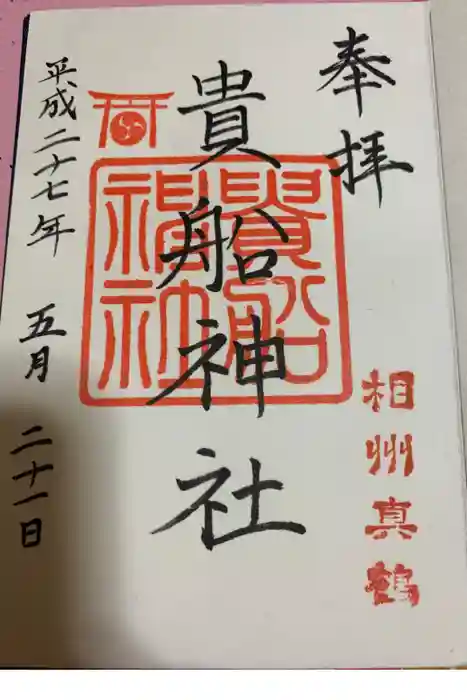 奉拝
相州真鶴
貴船神社
貴船
神社
平成二十七年 五月 二十一日